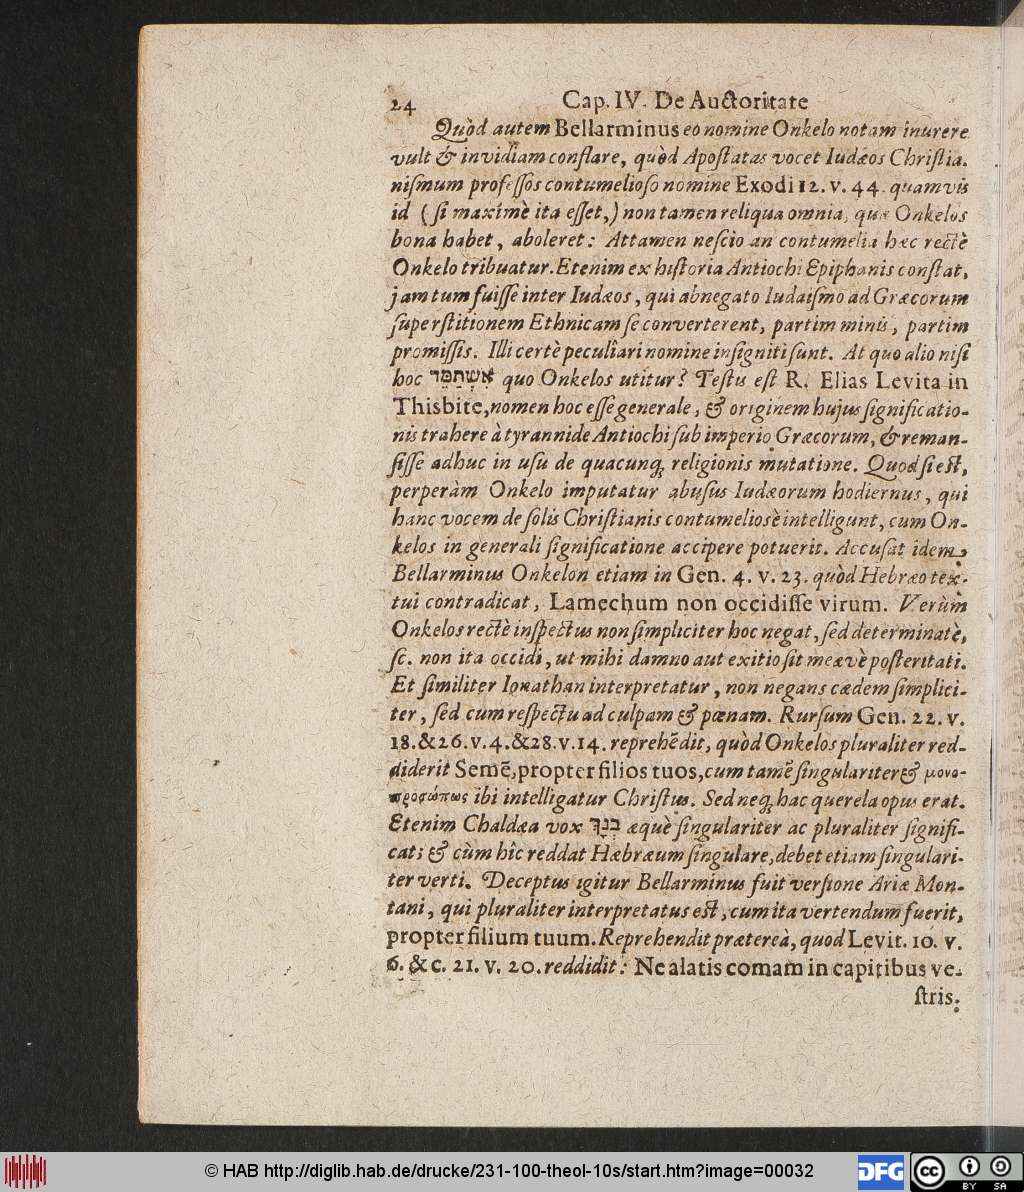 24 Cap. IV. De Auctoritate
Quòd autem Bellarminus eo nomine Onkelo notam inurere
vult & invidiam conflare, quòd Apostatas vocet Iudæos Christia-
nismum professos contumelioso nomine Exodi 12. v. 44. quamvis
id (si maximè ita esset,) non tamen reliqua omnia, quæ Onkelos
bona habet, aboleret: Attamen nescio an contumelia hæc rectè
Onkelo tribuatur. Etenim ex historia Antiochi Epiphanis constat,
jam tum fuisse inter Iudæos, qui abnegato Iudaismo ad Græcorum
superstitionem Ethnicam se converterent, partim minis, partim
promissis. Illi certè peculiari nomine insigniti sunt. At quo alio nisi
hoc אִשְׁתַּמֵּד quo Onkelos utitur? Testis est R. Elias Levita in
Thisbite, nomen hoc esse generale, & originem hujus significatio-
nis trahere à tyrannide Antiochi sub imperio Græcorum, & reman-
sisse adhuc in usu de quacunq; religionis mutatione. Quod si est,
perperàm Onkelo imputatur abusus Iudæorum hodiernus, qui
hanc vocem de solis Christianis contumeliosè intelligunt, cum On-
kelos in generali significatione accipere potuerit. Accusat idem
Bellarminus Onkelon etiam in Gen. 4. v. 23. quòd Hebræo tex-
tui contradicat, Lamechum non occidisse virum. Verùm
Onkelos rectè inspectus non simpliciter hoc negat, sed determinatè,
sc. non ita occidi, ut mihi damno aut exitio sit meævè posteritati.
Et similiter Ionathan interpretatur, non negans cædem simplici-
ter, sed cum respectu ad culpam & pœnam. Rursum Gen. 22. v.
18. & 26. v. 4. & 28. v. 14. reprehēdit, quòd Onkelos pluraliter red-
diderit Semē, propter filios tuos, cum tamē singulariter & μονο-
προσώπως ibi intelligatur Christus. Sed neq; hac querela opus erat.
Etenim Chaldæa vox בְּנָךְ æquè singulariter ac pluraliter signifi-
cat; & cùm hîc reddat Hæbræum singulare, debet etiam singulari-
ter verti. Deceptus igitur Bellarminus fuit versione Ariæ Mon-
tani, qui pluraliter interpretatus est, cum ita vertendum fuerit,
propter filium tuum. Reprehendit prætereà, quod Levit. 10. v.
6. & c. 21. v. 20. reddidit: Ne alatis comam in capitibus ve-
stris:
© HAB http://diglib.hab.de/drucke/231-100-theol-10s/start.htm?image=00032
DFG
cc BY SA